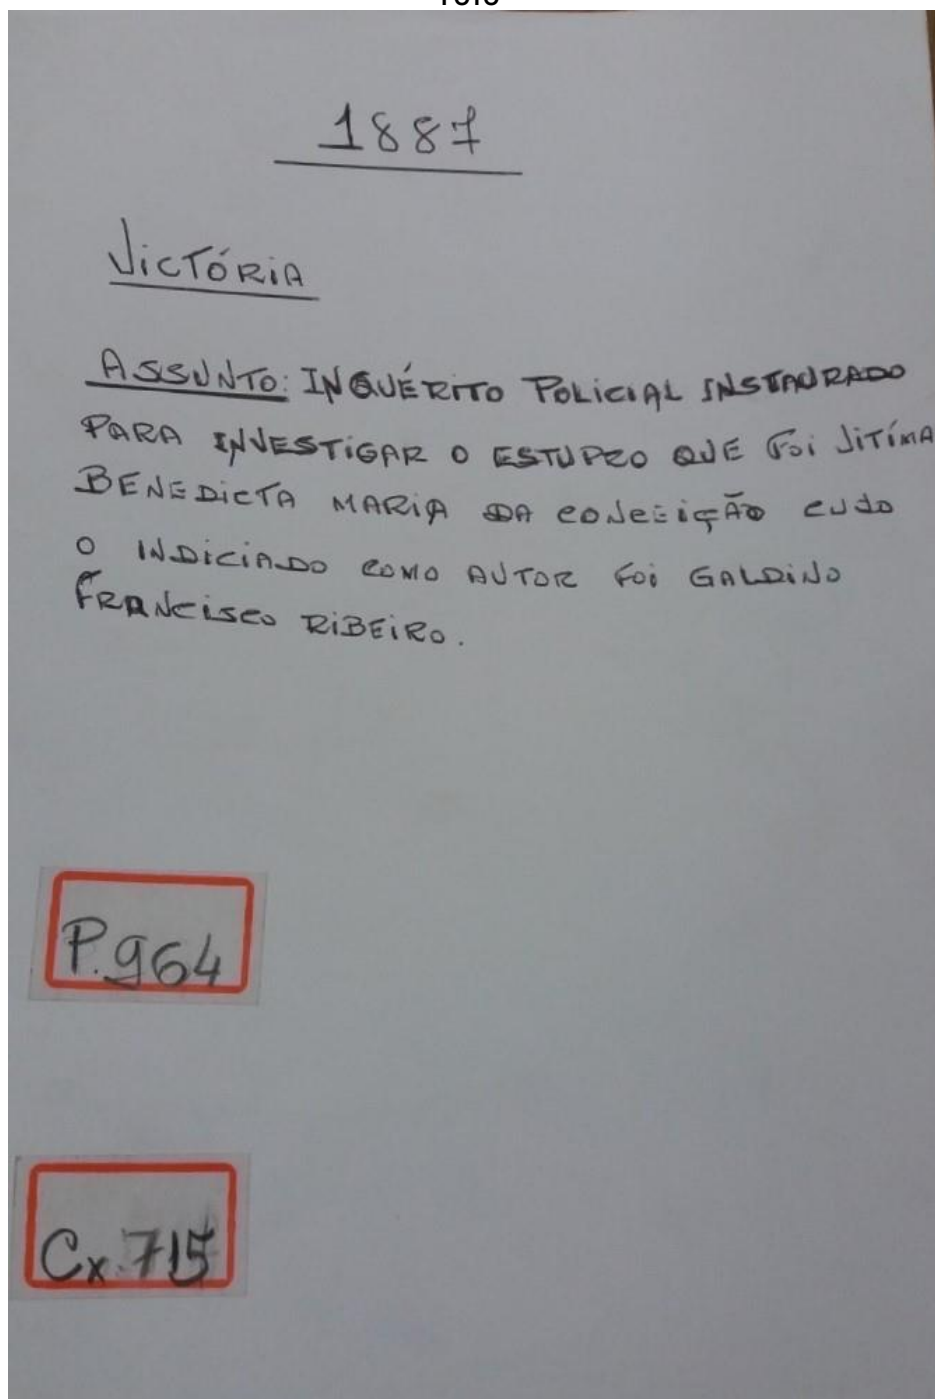 1887
VICTÓRIA
ASSUNTO: INQUÉRITO POLICIAL INSTAURADO
PARA INVESTIGAR O ESTUPRO QUE FOI VITÍMA
BENEDICTA MARIA DA CONCEIÇÃO CUJO
O INDICIADO COMO AUTOR FOI GALDINO
FRANCISCO RIBEIRO.
P.964
Cx.715